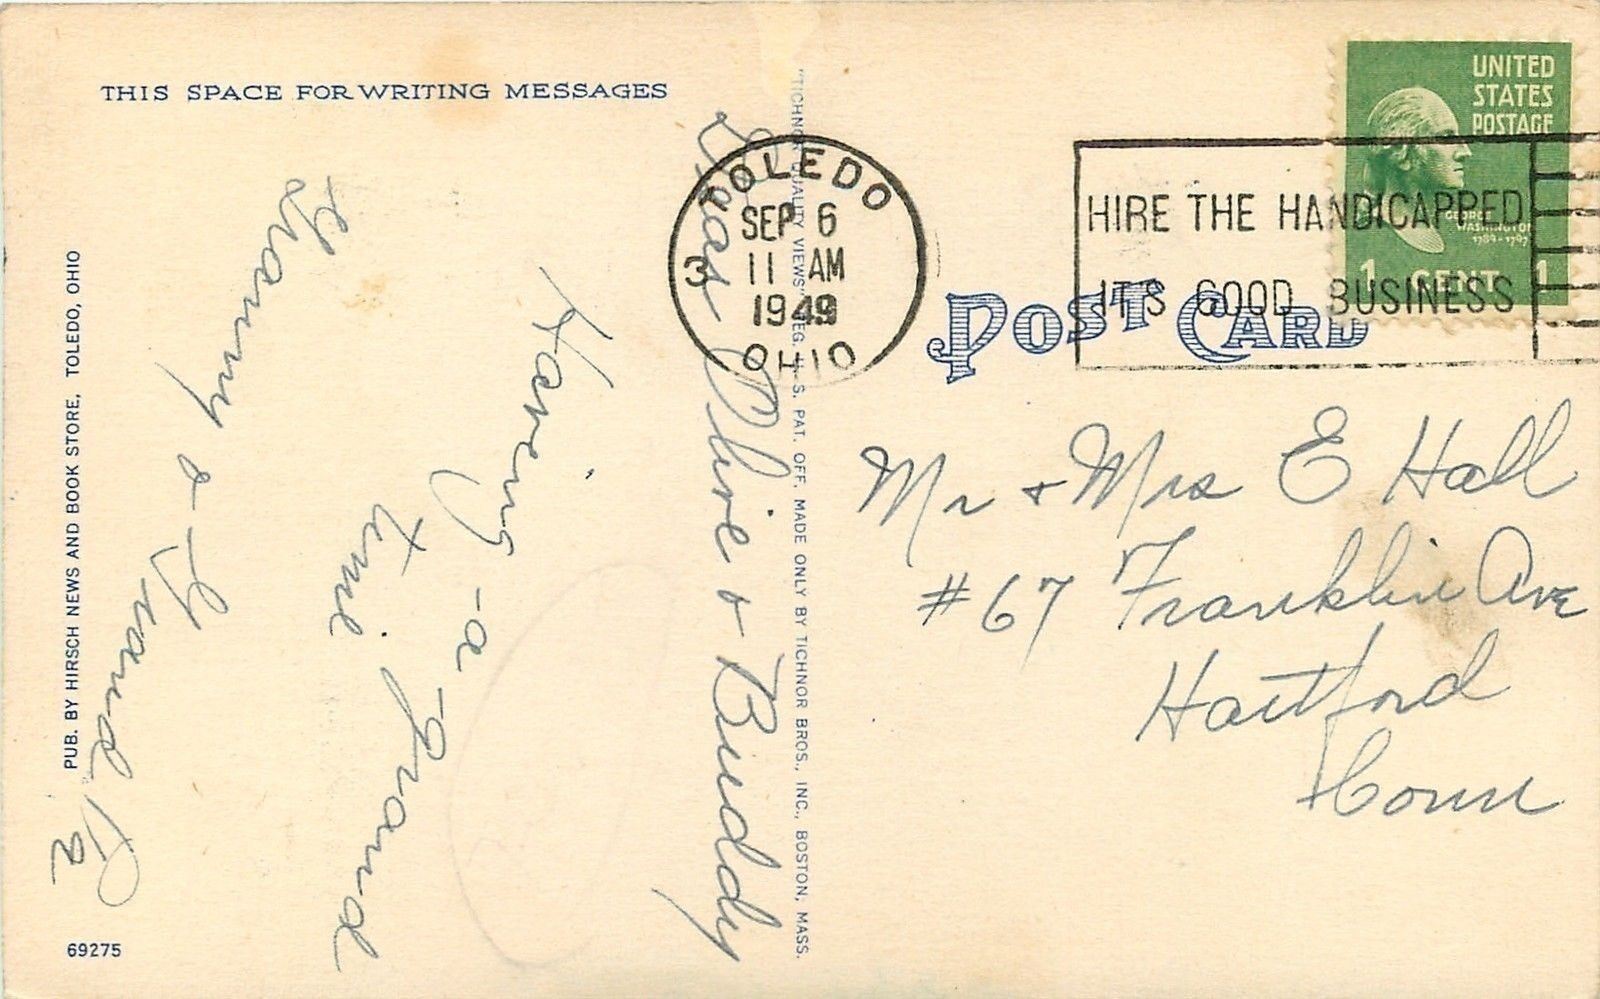 THIS SPACE FOR WRITING MESSAGES
Dear Olive & Buddy
Having -a-
time -grand
Granny & Grand Pa
PUB. BY HIRSCH NEWS AND BOOK STORE, TOLEDO, OHIO
69275
"TICHNOR QUALITY VIEWS" REG. U. S. PAT. OFF. MADE ONLY BY TICHNOR BROS., INC., BOSTON, MASS.
TOLEDO
SEP 6
11 AM
1949
OHIO
3
HIRE THE HANDICAPPED
IT'S GOOD BUSINESS
UNITED
STATES
POSTAGE
GEORGE
WASHINGTON
1789-1797
1 CENT 1
POST CARD
Mr & Mrs E Hall
#67 Franklin Ave
Hartford
Conn